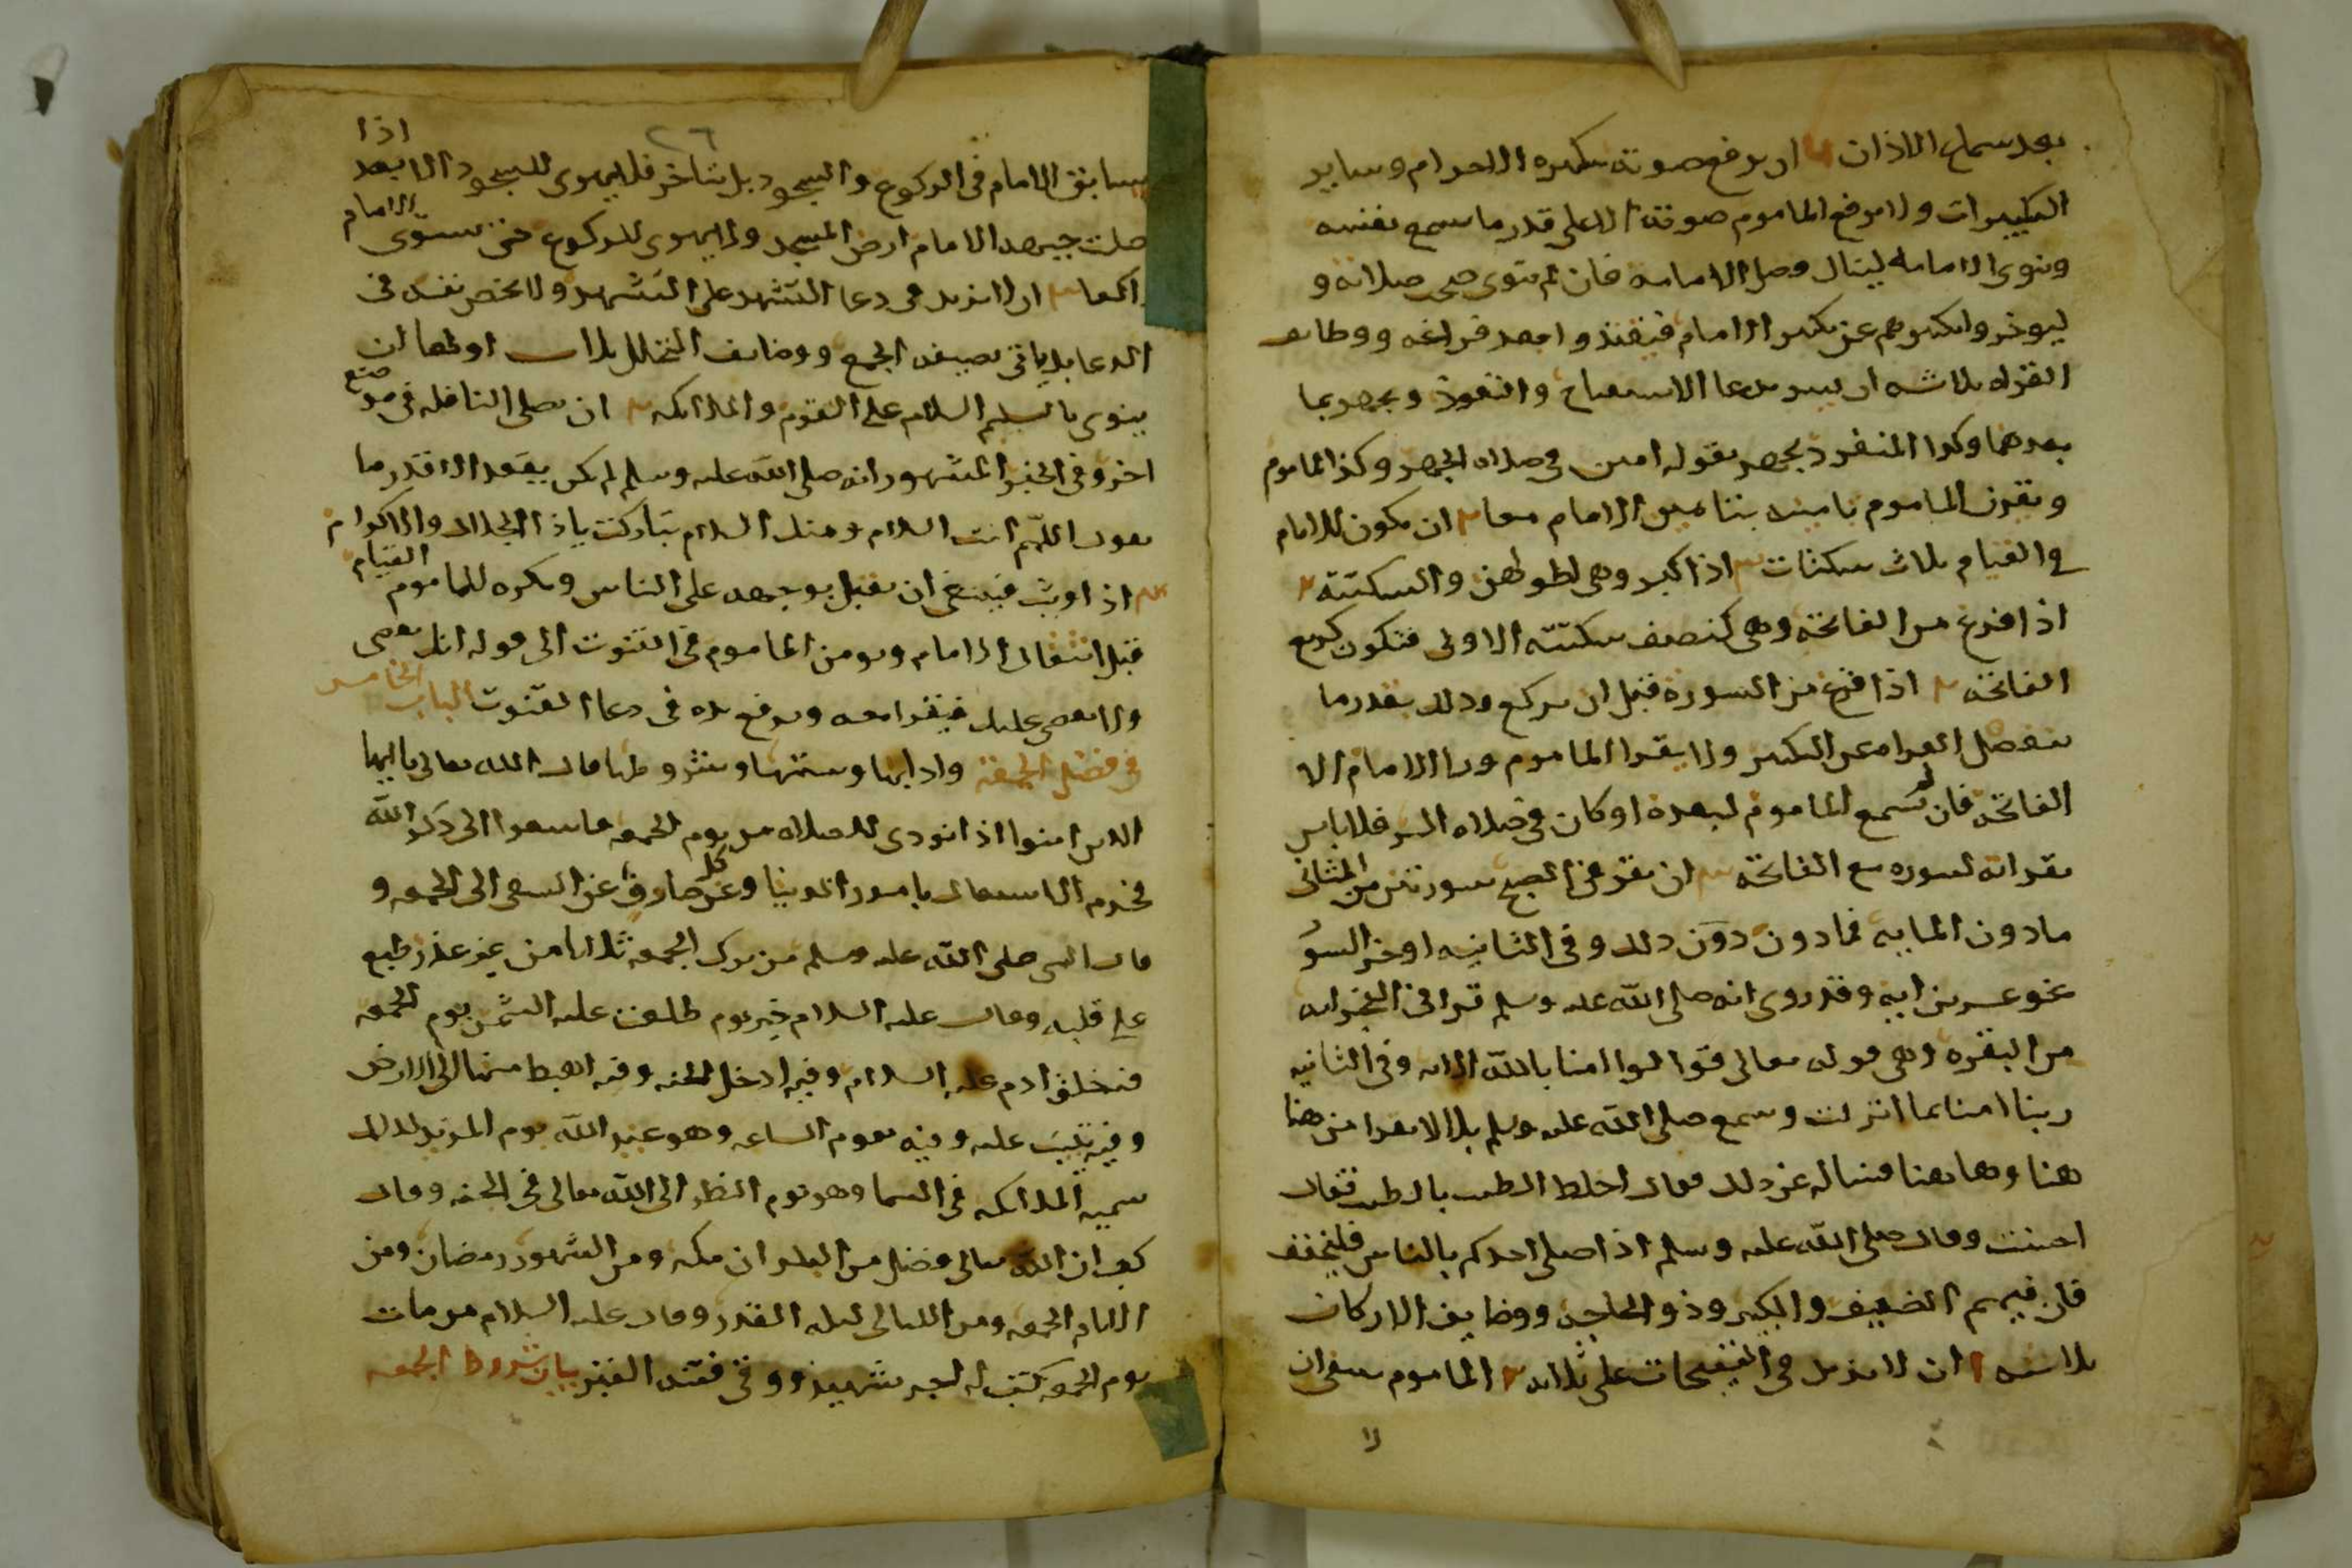 بعد سماع الاذان ان يرفع صوته بتكبيره الاحرام وساير
التكبيرات ولا يرفع الماموم صوته الا على قدر ما يسمع نفسه
وينوى الامامه لينال فضل الامامه فان لم ينوى صح صلاته و
ليوخروا تكبيرهم عن تكبير الامام فيبتدوا بعد فراغه ووظايف
القراه ثلاثه ان يسر بدعا الاستفتاح والتعوذ ويجهر بما
بعدهما وكذا المنفرد يجهر بقوله امين فى صلاه الجهر وكذا الماموم
ويقرن الماموم تامينه بتامين الامام معا ٢ ان يكون للامام
فى القيام ثلاث سكتات اذا كبر وهى اطولهن والسكتة ٢
اذا فرغ من الفاتحة وهى كنصف سكتته الاولى فتكون كربع
الفاتحه ٣ اذا فرغ من السورة قبل ان يركع وذلك بقدر ما
ينفصل القراه عن التكبير ولا يقرا الماموم ورا الامام الا
الفاتحه فان لم يسمع الماموم لبعده او كان فى صلاه السر فلا باس
بقراته لسوره مع الفاتحه ٣ ان يقرا فى الصبح سورتين من المثانى
ما دون المايه فما دون دون ذلك وفى الثانيه اوخر السو
نحو عشرين ايه وقد روى انه صلى الله عليه وسلم قرا فى الفجر ايه
من البقره وهى قوله تعالى قولوا امنا بالله الايه وفى الثانيه
ربنا امنا بما انزلت وسمع صلى الله عليه وسلم بلالا يقرا من هنا
هنا وهاهنا فساله عن ذلك فقال اخلط الطيب بالطيب فقال
احسنت وقال صلى الله عليه وسلم اذا صلى احدكم بالناس فليخفف
فان فيهم الضعيف والكبير وذو الحاجه ووضايف الاركان
ثلاثه ا ان لا يزيد فى التسبيحات على ثلاثه ٢ الماموم ينبغى ان
لا
٢٦
يسابق الامام فى الركوع والسجود بل يتاخر فلا يهوى للسجود الا بعد اذا
وصلت جبهه الامام ارض المسجد ولا يهوى للركوع حتى يستوى الامام
راكعا ٣ ان لا يزيد فى دعا التشهد على التشهد ولا يخص نفسه فى
الدعا بل ياتى بصيغه الجمع ووضايف التحلل ثلاث اولها ان
ينوى بالتسليم السلام على القوم والملائكه ٢ ان يصلى النافله فى موضع
اخر وفى الخبر المشهور انه صلى الله عليه وسلم لم يكن يقعد الا قدر ما
يقول اللهم انت السلام ومنك السلام تباركت ياذا الجلال والاكرام
٣ اذا وثب فينبغى ان يقبل بوجهه على الناس ويكره للماموم القيام
قبل انتقال الامام ويومن الماموم فى القنوت الى قوله انك تقضى
ولا يقضى عليك فيقرا معه ويرفع يده فى دعا القنوت الباب الخامس
فى فضل الجمعة وادابها وسننها وشروطها قال الله تعالى ياايها
الذين امنوا اذا نودى للصلاه من يوم الجمعه فاسعوا الى ذكر الله
فحرم الاشتغال بامور الدنيا وعن كل صارف عن السعى الى الجمعه و
قال النبى صلى الله عليه وسلم من ترك الجمعه ثلاثا من غير عذر طبع
على قلبه وقال عليه السلام خير يوم طلعت عليه الشمس يوم الجمعه
فيه خلق ادم عليه السلام وفيه ادخل الجنه وفيه اهبط منها الى الارض
وفيه تيب عليه وفيه تقوم الساعه وهو عند الله يوم المزيد كذلك
تسميه الملائكه فى السما وهو يوم النظر الى الله تعالى فى الجنه وقال
كعب ان الله تعالى فضل من البلدان مكه ومن الشهور رمضان ومن
الايام الجمعه ومن الليالى ليله القدر وقال عليه السلام من مات
يوم الجمعه كتب له اجر شهيد ووقى فتنه القبر بيان شروط الجمعه